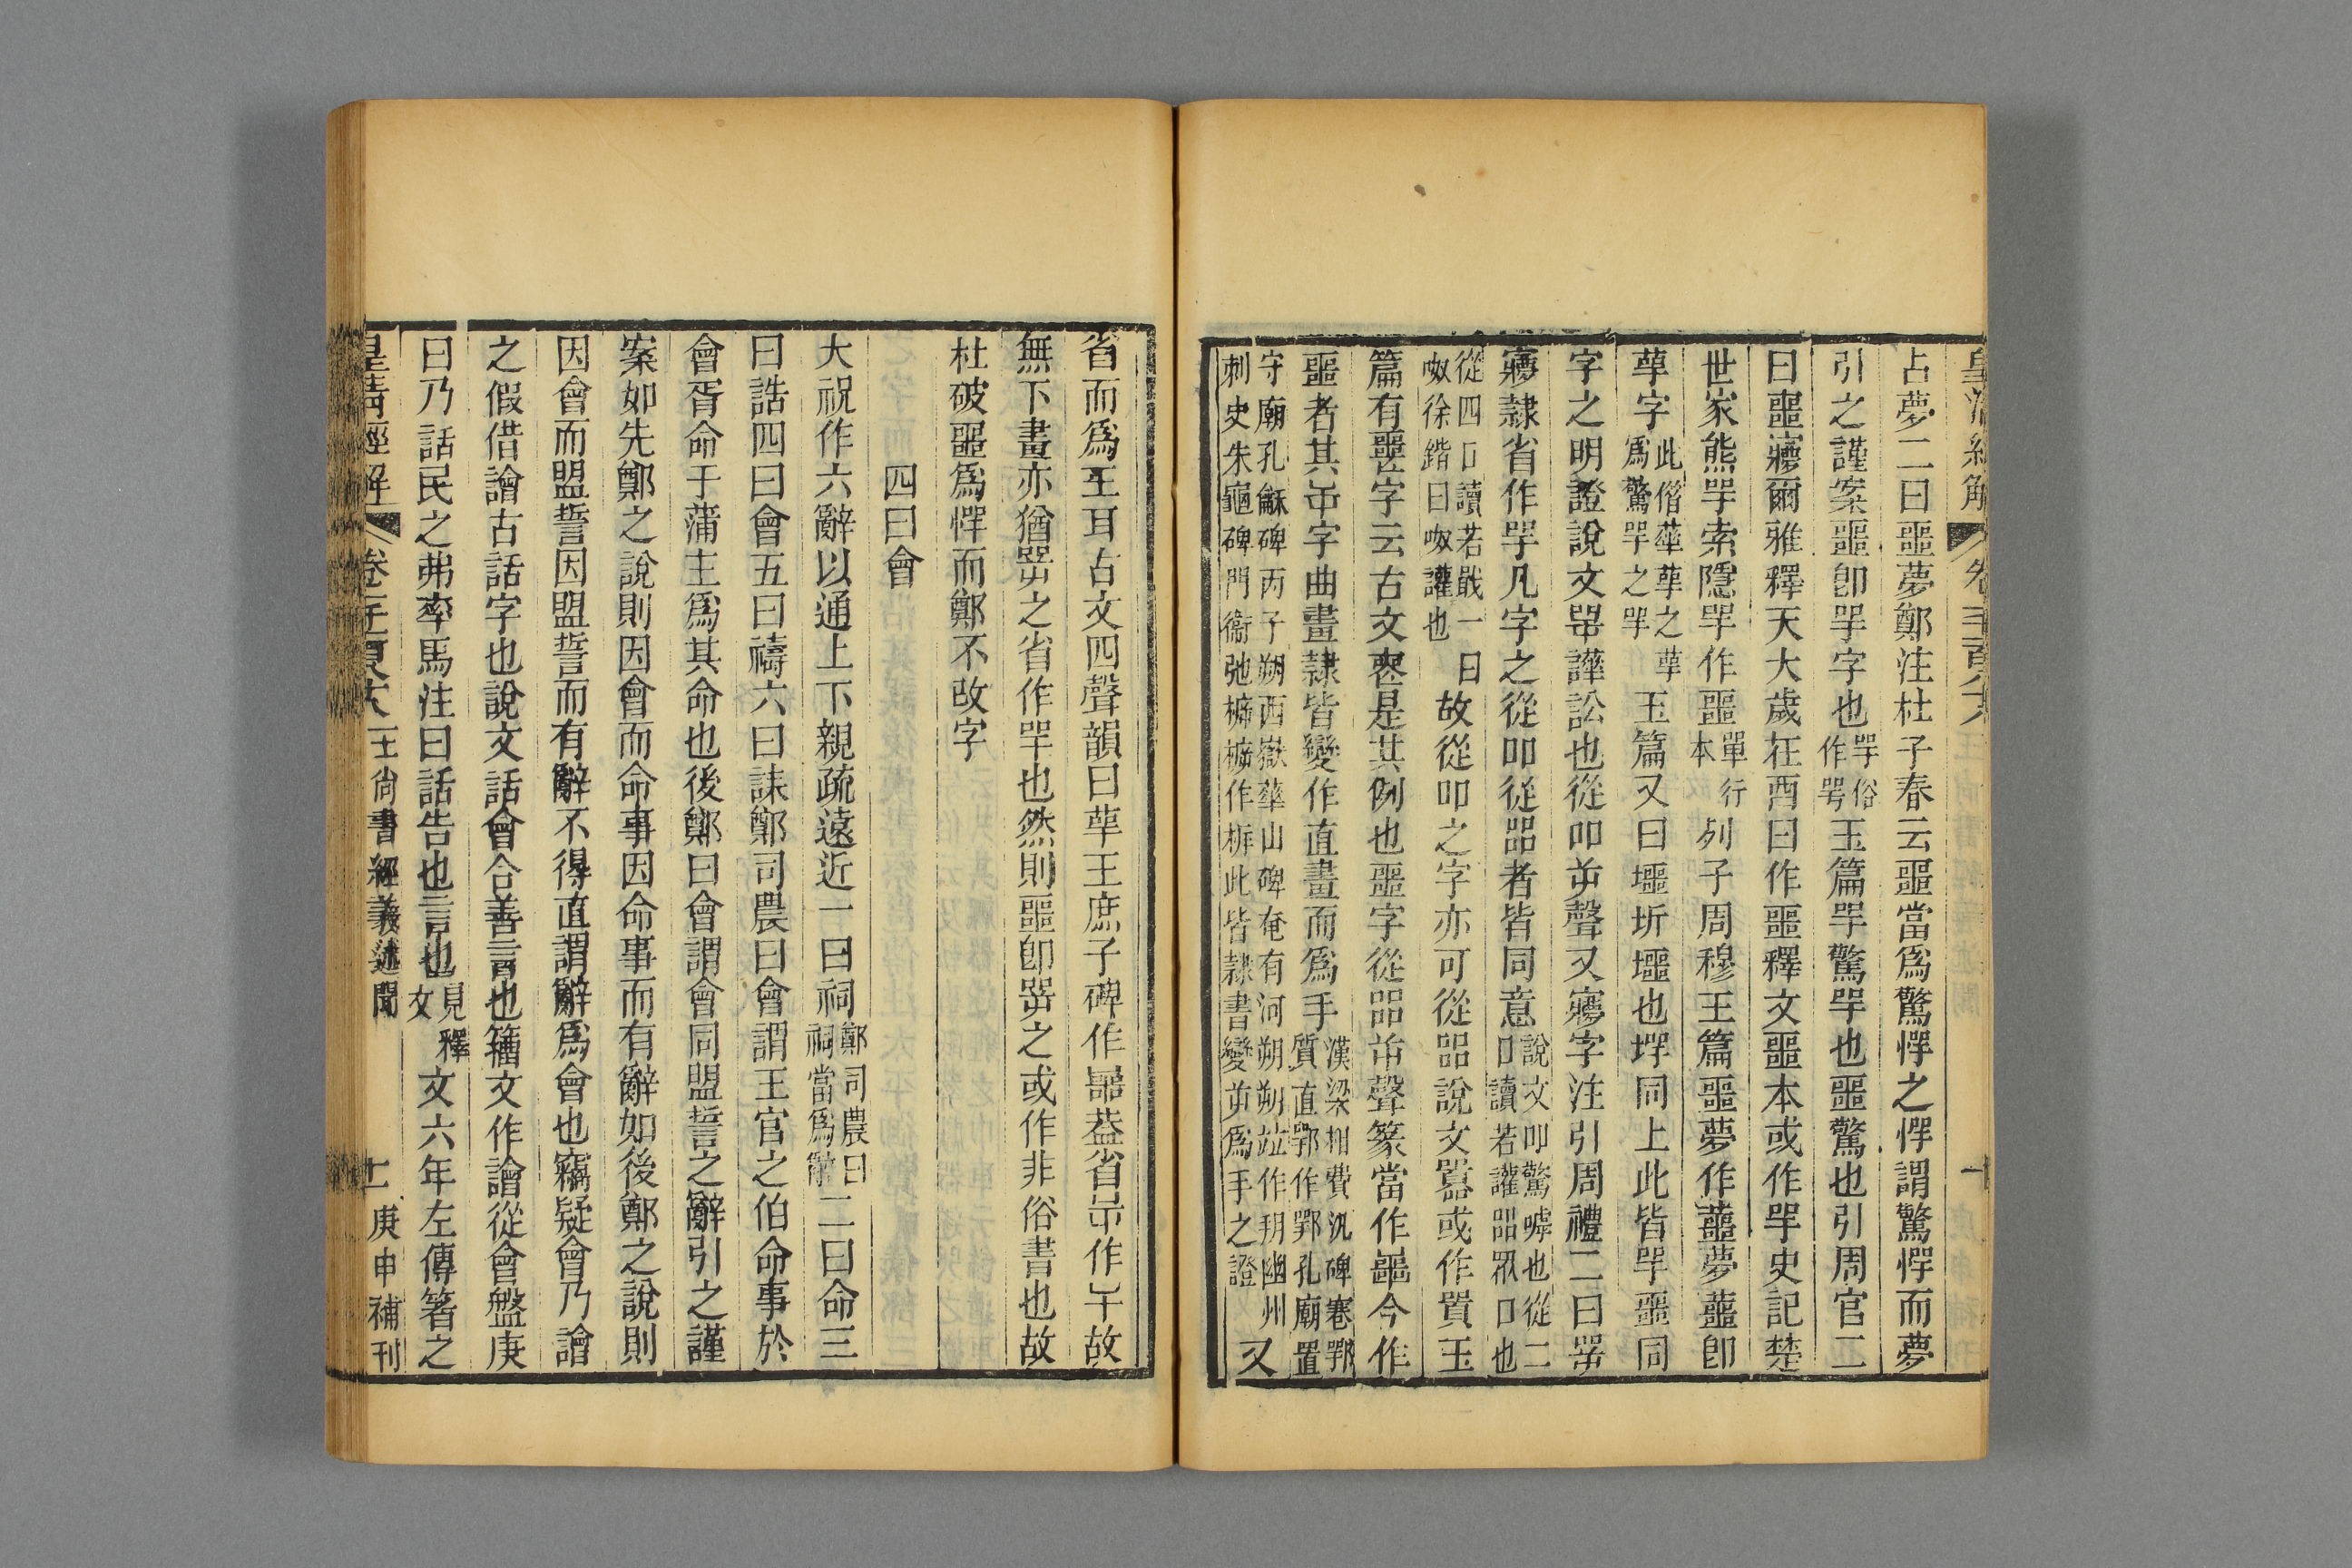 占夢二曰噩夢鄭注杜子春云噩當爲驚愕之愕謂驚愕而夢
引之謹案噩卽咢字也咢俗作咢玉篇咢驚咢也噩驚也引周官二
曰噩㝱爾雅釋天大歲在酉曰作噩釋文噩本或作咢史記楚
世家熊咢索隱咢作噩單行本列子周穆王篇噩夢作蘁夢蘁卽
蕚字此偕華蕚之蕚爲驚咢之咢玉篇又曰堮圻堮也堮同上此皆咢噩同
字之明證說文咢譁訟也從吅屰聲又㝱字注引周禮二曰咢
㝱隸省作咢凡字之從吅從㗊者皆同意說文吅驚嘑也從二口讀若讙㗊眾口也
從四口讀若戢一曰呶徐鍇曰呶讙也故從吅之字亦可從㗊說文嚚或作䚕玉
篇有噩字云古文喪是其例也噩字從㗊屰聲篆當作噩今作
噩者其屰字曲畫隸皆變作直畫而爲手漢梁相費汎碑蹇鄂質直鄂作鄂孔廟置
守廟孔龢碑丙子朔西嶽華山碑奄有河朔朔竝作玥幽州刺史朱龜碑門衞弛㯊㯊作柝此皆隸書變屰爲手之證又
省而爲王耳古文四聲韻曰蕚王庶子碑作噩葢省屰作午故
無下畫亦猶咢之省作咢也然則噩卽咢之或作非俗書也故
杜破噩爲愕而鄭不改字
四曰會
大祝作六辭以通上下親疏遠近一曰祠鄭司農曰祠當爲辭二曰命三
曰誥四曰會五曰禱六曰誄鄭司農曰會謂王官之伯命事於
會胥命于蒲主爲其命也後鄭曰會謂會同盟誓之辭引之謹
案如先鄭之說則因會而命事因命事而有辭如後鄭之說則
因會而盟誓因盟誓而有辭不得直謂辭爲會也竊疑會乃譮
之假借譮古話字也說文話會合善言也籒文作譮從會盤庚
曰乃話民之弗率馬注曰話告也言也見釋文文六年左傳箸之
皇淸經解 卷千一百八十八 王尚書經義述聞 十一 庚申補刊